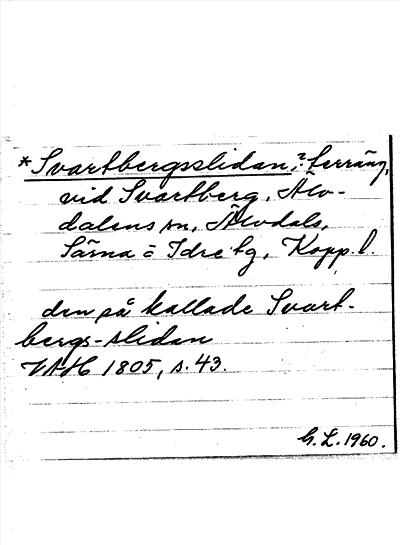 *Svartbergsslidan, ? terräng,
vid Svartberg, Älv-
dalens sn, Älvdals,
Särna = Idre tg, Kopp. l.
den så kallade Svart-
bergs-slidan
VAH 1805, s. 43.
G. L. 1960.